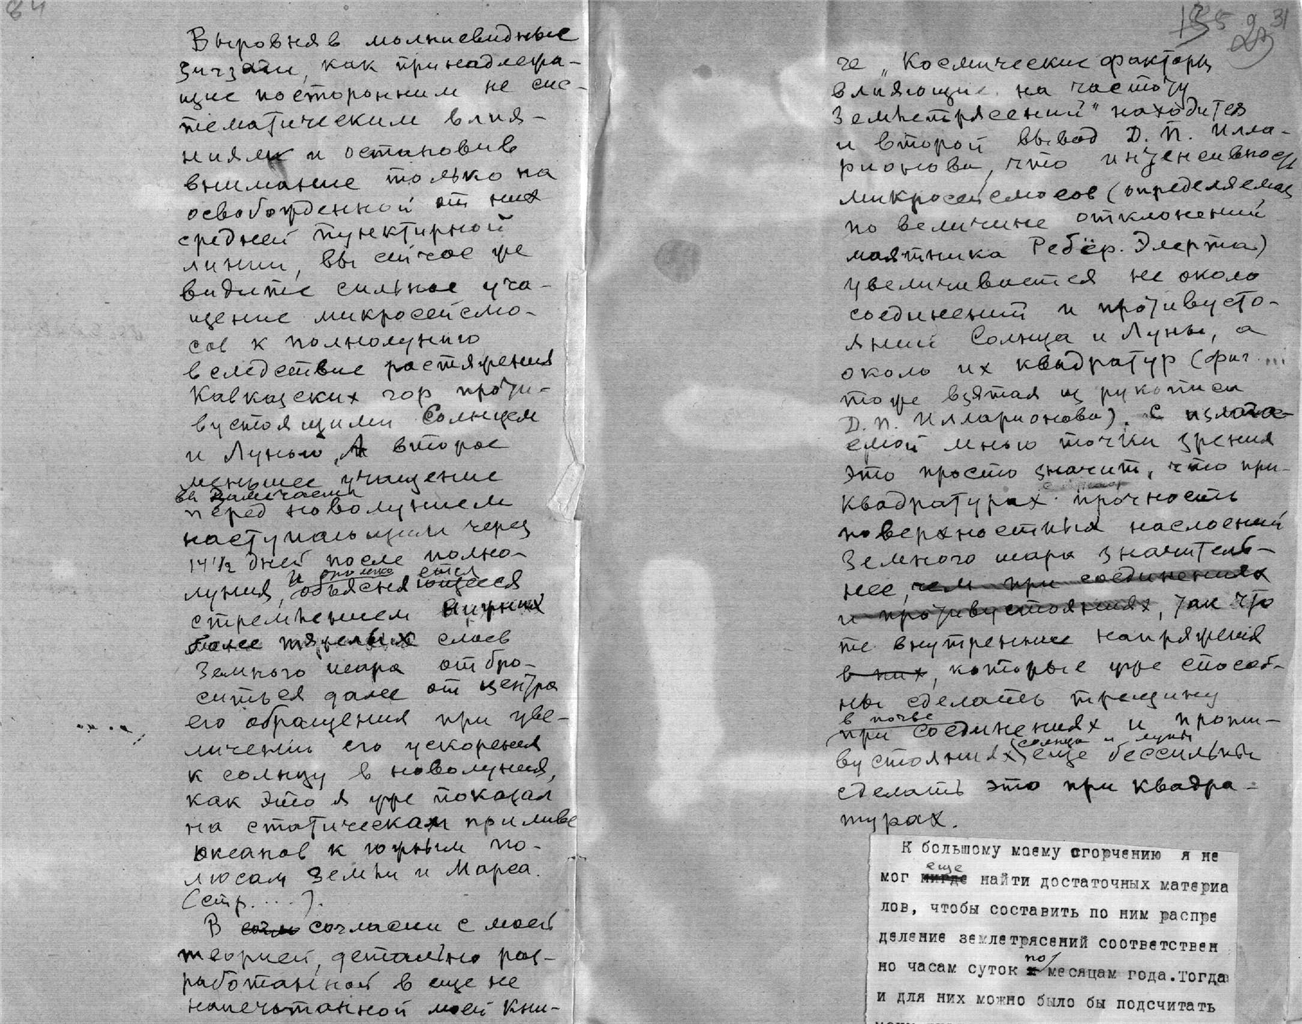 84
Выровняв молниевидные
зигзаги, как принадлежа-
щие посторонним не сис-
тематическим влия-
ниям и остановив
внимание только на
освобожденной от них
средней пунктирной
линии, вы сейчас же
видите сильное уча-
щение микросейсмо-
сов к полнолунию
вследствие растяжения
Кавказских гор проти-
вустоящими Солнцем
и Луною, А второе
меньшее учащение
вы замечаете
перед новолунием
наступающим через
14 1/2 дней после полно-
луния, и
объясняющееся
стремлением
более тяжелых слоев
Земного шара отбро-
ситься далее от центра
его обращения при уве-
личении его ускорения
к солнцу в новолуния,
как это я уже показал
на статическом приливе
океанов к южным по-
люсам Земли и Марса.
(стр. ....).
В согласии с моей
теорией, детально раз-
работанной в еще не
напечатанной моей кни-
31
ге „Космические факторы
влияющие на частоту
Землетрясений" находится
и второй вывод Д. П. Илла-
рионова, что интенсивность
микросейсмосов (определяемая
по величине отклонений
маятника Ребёр. Элерта)
увеличивается не около
соединений и противусто-
яний Солнца и Луны, а
около их квадратур (фиг ...
тоже взятая из рукописи
Д. П. Илларионова). С излага-
емой мною точки зрения
это просто значит, что при
квадратурах прочность
поверхностных наслоений
Земного шара значитель-
нее, чем при соединениях
и противустояниях, так что
те внутренние напряжения
в них, которые уже способ-
ны сделать трещину
в почве
при соединениях и проти-
солнца и луны
вустояниях, еще бессильны
сделать это при квадра-
турах.
К большому моему огорчению я не
еще
мог нигде найти достаточных материа
лов, чтобы составить по ним распре
деление землетрясений соответствен
по
но часам суток и месяцам года.Тогда
и для них можно было бы подсчитать